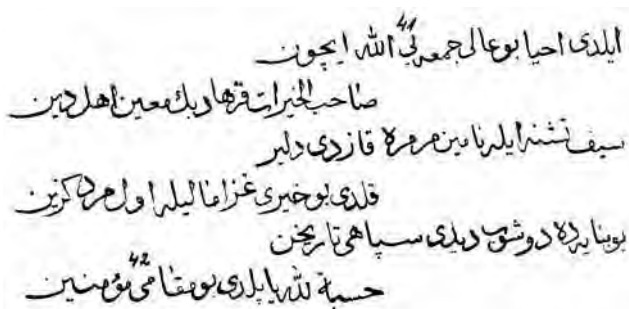 ايلدى احيا بو عالى جمعه يى 41 الله ايچون
صاحب الخيرات فرهاد بك معين اهل دين
سيف تشنه ايله نامين مرمره قازدى دلير
قلدى بو خيرى غزا ماليله اول مرد كزين
بو بنايه ده دوشوب ديدى سپاهى تاريخن
حسبة لله ياپلدى بو مقامى 42 مؤمنين